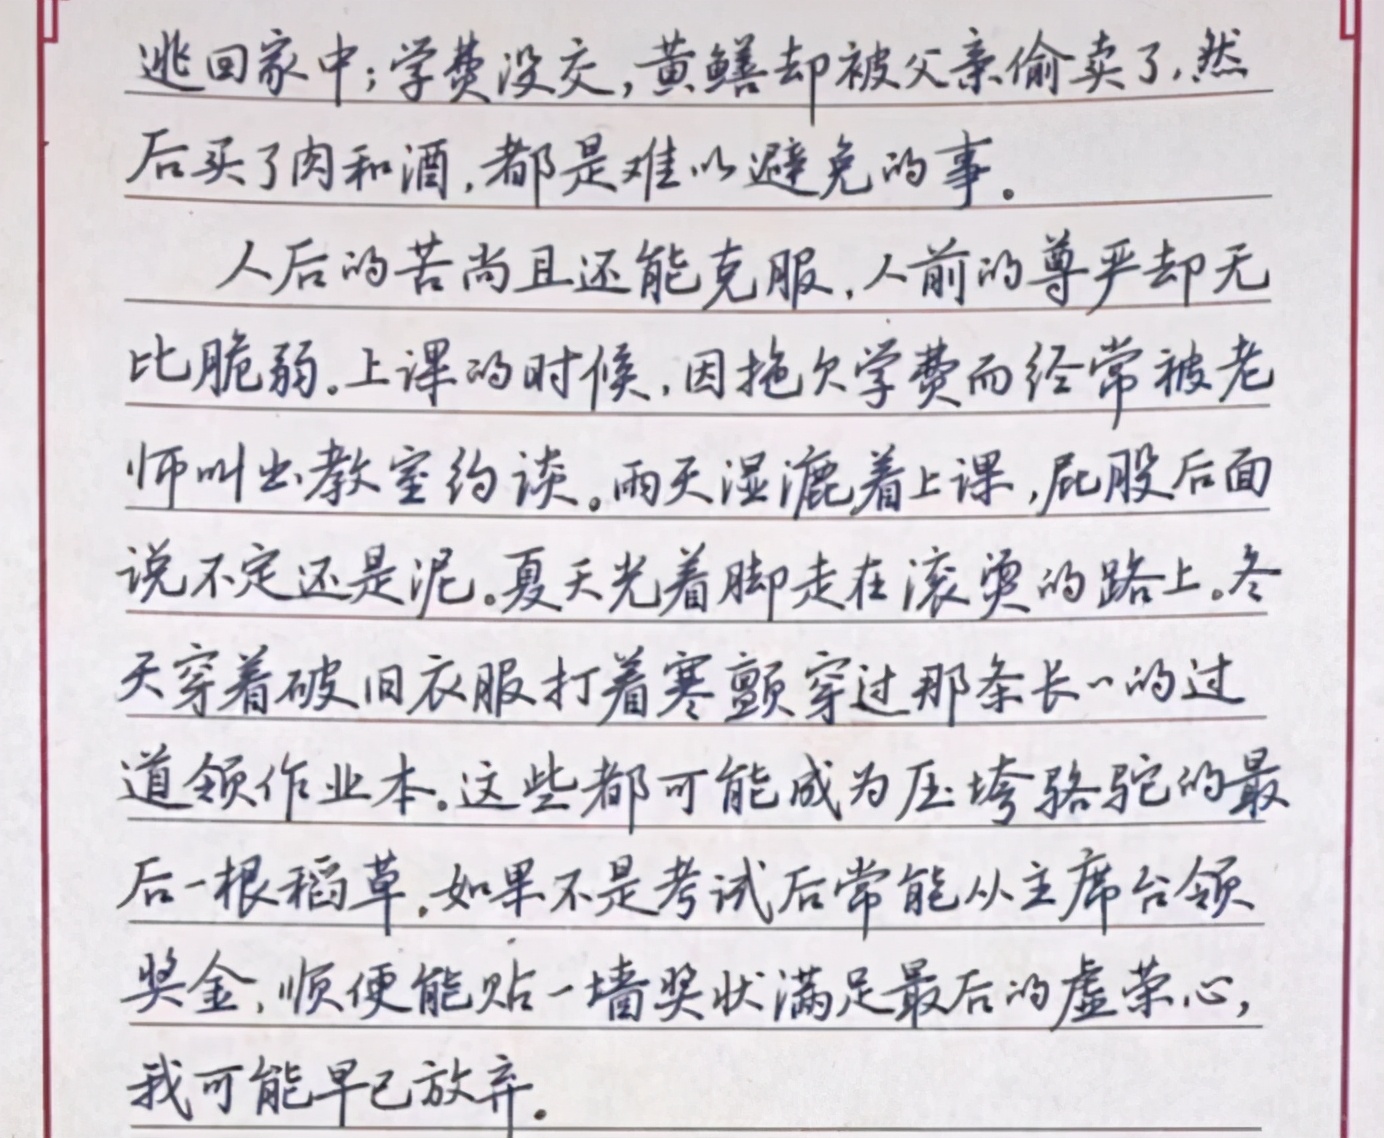 逃回家中；学费没交，黄鳝却被父亲偷卖了，然
后买了肉和酒，都是难以避免的事。
人后的苦尚且还能克服，人前的尊严却无
比脆弱。上课的时候，因拖欠学费而经常被老
师叫出教室约谈。雨天湿漉着上课，屁股后面
说不定还是泥。夏天光着脚走在滚烫的路上。冬
天穿着破旧衣服打着寒颤穿过那条长长的过
道领作业本。这些都可能成为压垮骆驼的最
后一根稻草。如果不是考试后常能从主席台领
奖金，顺便能贴一墙奖状满足最后的虚荣心，
我可能早已放弃。